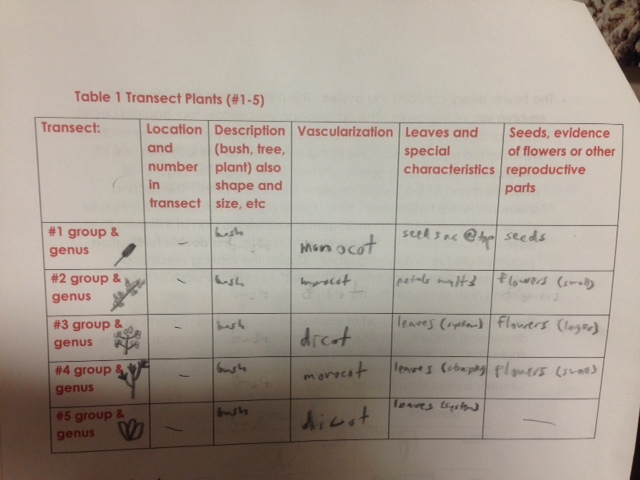 Table 1 Transect Plants (#1-5)
Transect:
Location
and
number
in
transect
Description
(bush, tree,
plant) also
shape and
size, etc
Vascularization
Leaves and
special
characteristics
Seeds, evidence
of flowers or other
reproductive
parts
#1 group &
genus
-
bush
monocot
@top
seeds
#2 group &
genus
-
bush
monocot
petals
flowers (small)
#3 group &
genus
-
bush
dicot
leaves (system)
flowers
#4 group &
genus
-
bush
monocot
leaves
flowers (small)
#5 group &
genus
-
bush
dicot
leaves (system)
-